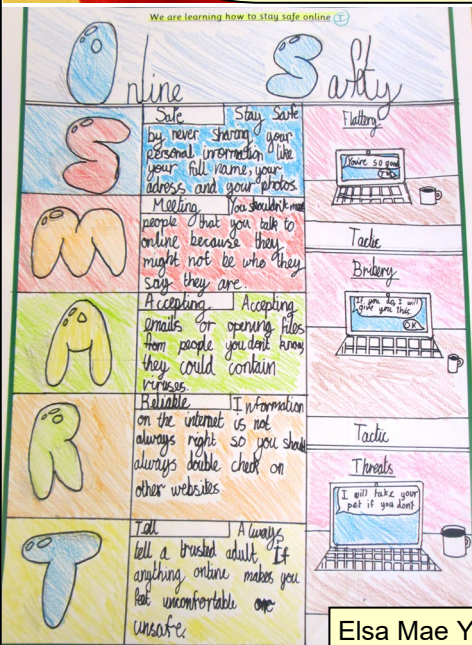 We are learning how to stay safe online I
Online Safty
S
Safe Stay Safe
by never sharing your
personal inrormation like
your full name, your
adress and your photos
M
Meeting You shouldn't meet
people that you talk to
online because they
might not be who they
say they are.
A
Accepting Accepting
emails or opening files
from people you dont know,
they could contain
viruses.
R
Reliable Information
on the internet is not
always right so you should
always double check on
other websites
T
Tell Always
tell a trusted adult If
anything online makes you
feel uncomfortable one
unsafe.
Flattery
You're so good
OK
Tactic
Bribery
If you do, I will
give you this
OK
Tactic
Threats
I will take your
pet if you dont
Elsa Mae Y